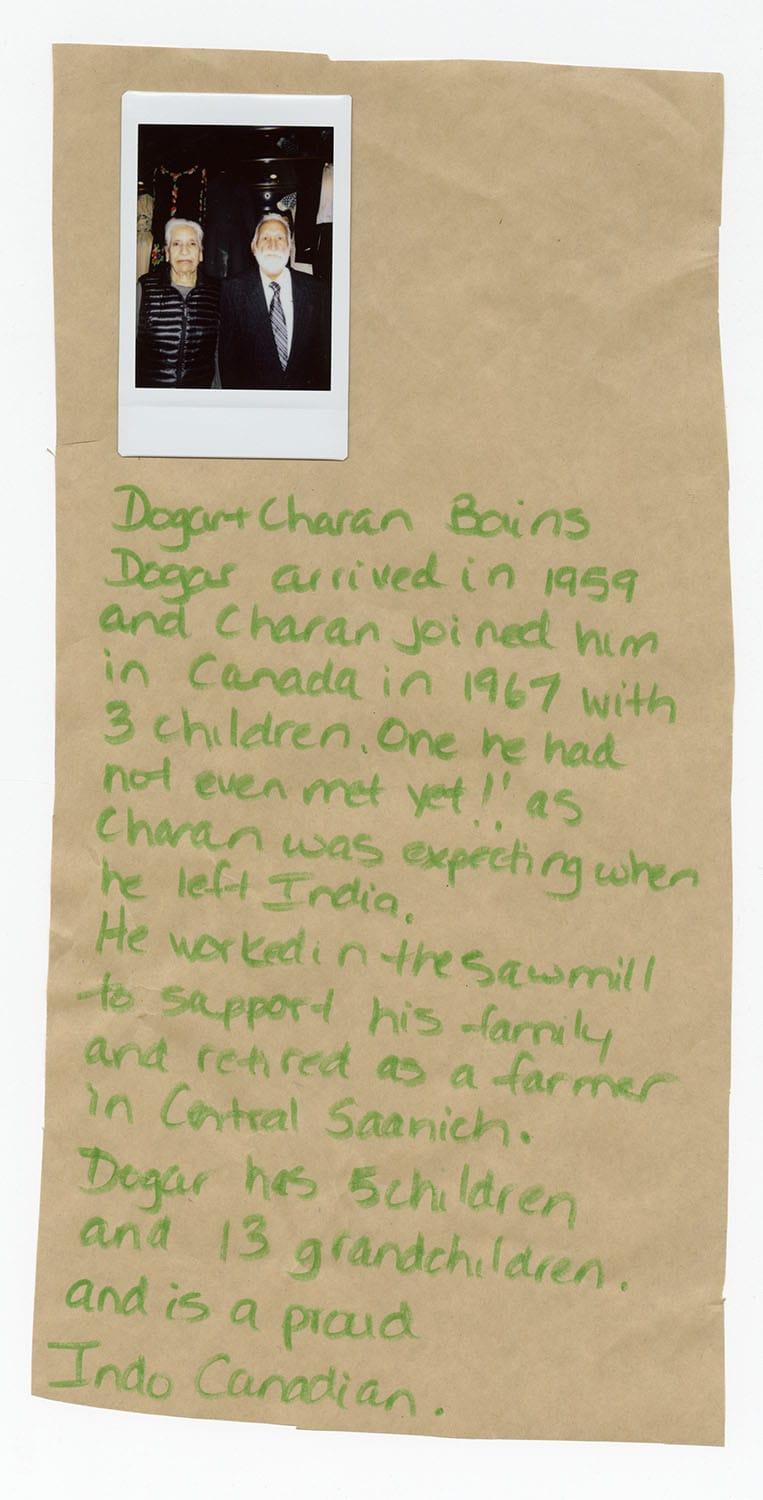 Dogar + Charan Bains
Dogar arrived in 1959
and Charan joined him
in Canada in 1967 with
3 children. One he had
not even met yet!! as
Charan was expecting when
he left India.
He worked in the sawmill
to support his family
and retired as a farmer
in Central Saanich.
Dogar has 5 children
and 13 grandchildren.
and is a proud
Indo Canadian.